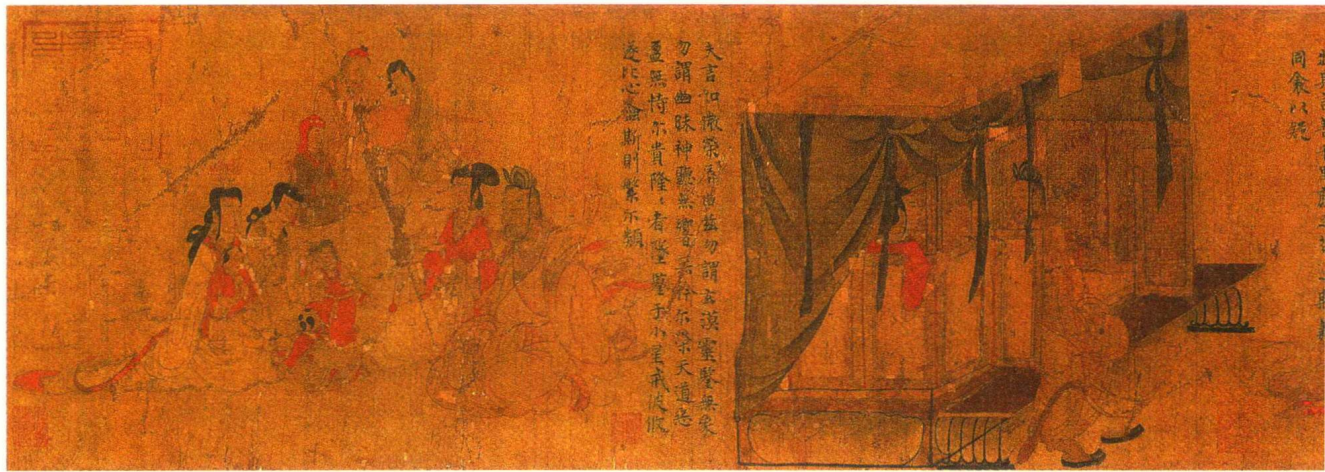 同衾以疑
夫言如微榮辱由茲勿謂玄漠靈鑒無象
勿謂幽昧神聽無響無矜尔榮天道惡
盈無恃尔貴隆〻者墜鑒于小星戒彼攸
遂比心螽斯則繁尔類